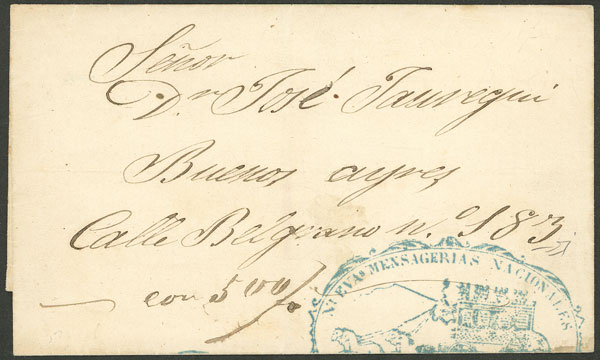 Señor
Dr José Jauregui
Buenos ayres
Calle Belgrano nº 183
con 500/
NUEVA MENSAGERIAS NACIONALES